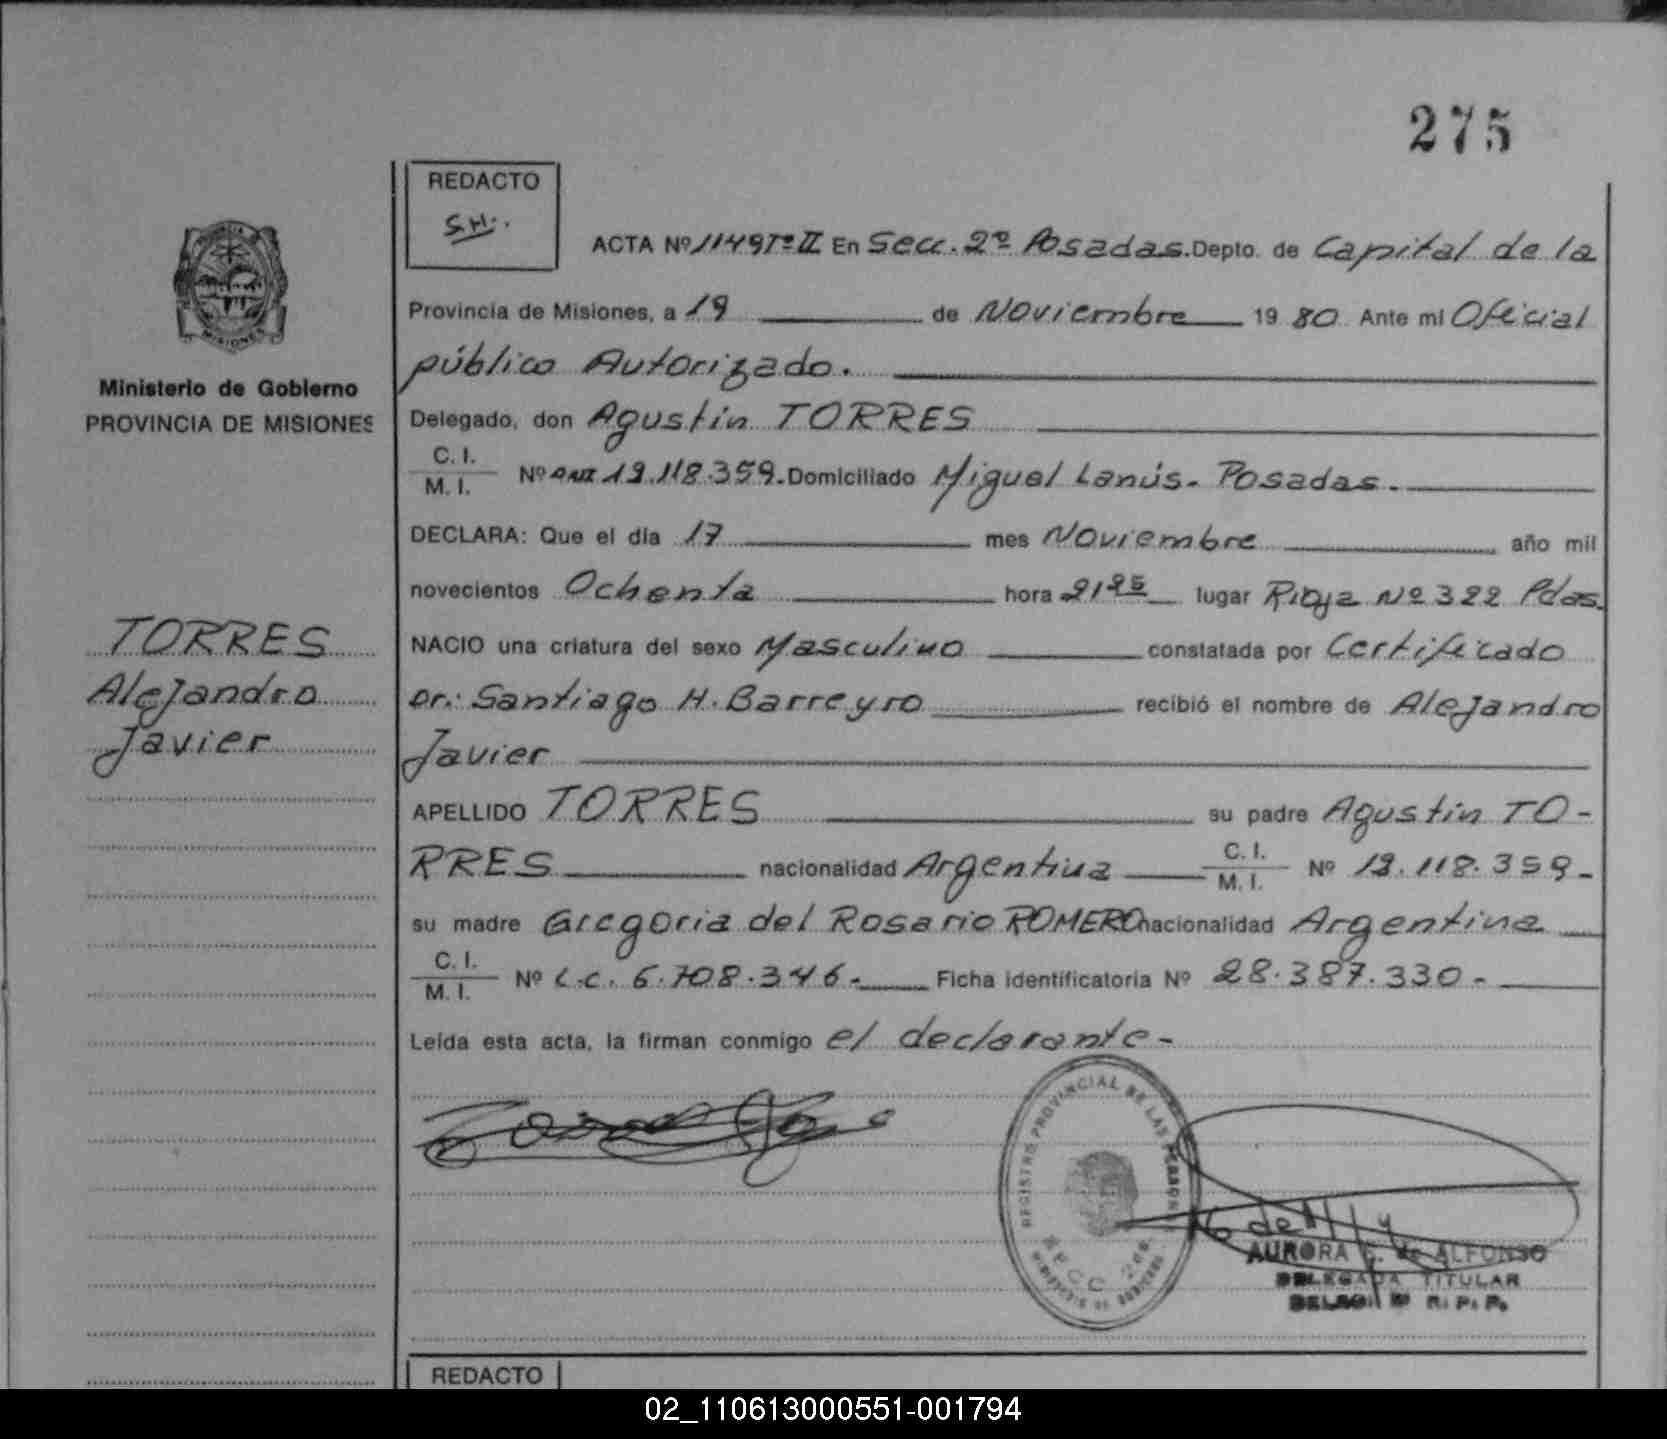 275
REDACTO
S.H.
ACTA Nº 1149 Tº II En Secc. 2º Posadas. Depto. de Capital de la
Provincia de Misiones, a 19 de Noviembre 19 80 Ante mi Oficial
público Autorizado.
Ministerio de Gobierno
PROVINCIA DE MISIONES
Delegado, don Agustín TORRES
C. I.
M. I. Nº DNI 13.118.359. Domiciliado Miguel Lanús - Posadas.
DECLARA: Que el día 17 mes Noviembre año mil
novecientos Ochenta hora 21 25 lugar Rioja Nº 322 Pdas.
TORRES
Alejandro
Javier
NACIO una criatura del sexo Masculino constatada por Certificado
Dr.: Santiago H. Barreyro recibió el nombre de Alejandro
Javier
APELLIDO TORRES su padre Agustín TO-
RRES nacionalidad Argentina C. I. M. I. Nº 13.118.359-
su madre Gregoria del Rosario ROMERO nacionalidad Argentina
C. I.
M. I. Nº L.C. 6.708.346.- Ficha identificatoria Nº 28.387.330-
Leída esta acta, la firman conmigo el declarante-
REGISTRO PROVINCIAL DE LAS PERSONAS
SECC. 2da.
AURORA G. de ALFONSO
DELEGADA TITULAR
R. P. P.
REDACTO
02_110613000551-001794